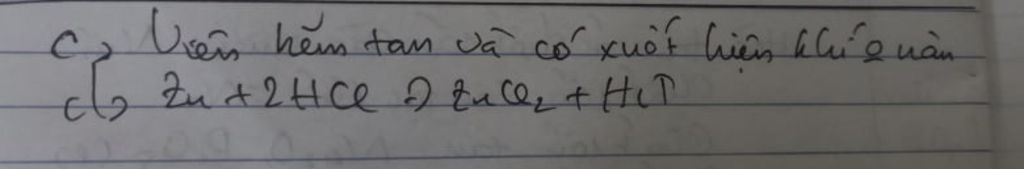 c, Viên kẽm tan và có xuất hiện khí
Zn + 2HCl → ZnCl2 + H2↑